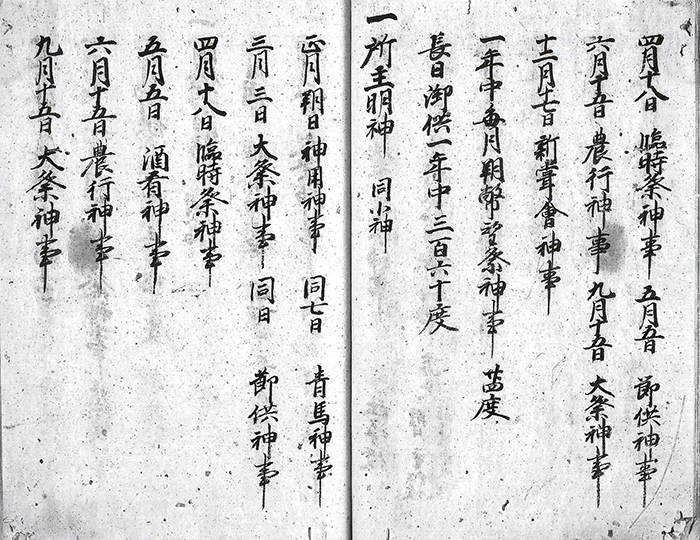 四月十八日 臨時祭神事 五月五日 節供神事
六月十五日 農行神事 九月十五日 大祭神事
十二月七日 新嘗會神事
一年中每月朔幣望祭神事 廿四度
長日御供一年中三百六十度
一所主明神 同小神
正月朔日神用神事 同七日 青馬神事
三月三日 大祭神事 同日 節供神事
四月十八日臨時祭神事
五月五日 酒肴神事
六月十五日農行神事
九月十五日 大祭神事